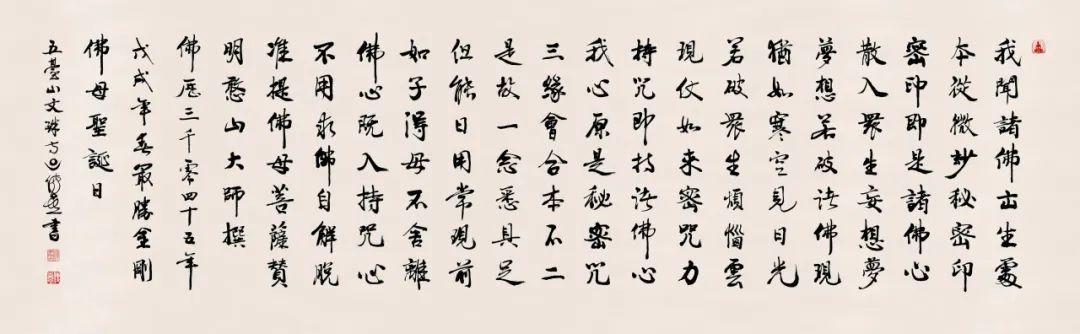 我聞諸佛出生處
本從微妙秘密印
密印即是諸佛心
散入眾生妄想夢
夢想若破諸佛現
猶如寒空見日光
若破眾生煩惱雲
現仗如來密咒力
持咒即持諸佛心
我心原是秘密咒
三緣會合本不二
是故一念悉具足
但能日用常現前
如子得母不舍離
佛心既入持咒心
不用求佛自解脫
准提佛母菩薩贊
明憨山大師撰
佛歷三千零四十五年
戊戌年春最勝金剛
佛母聖誕日
五臺山文殊寺書